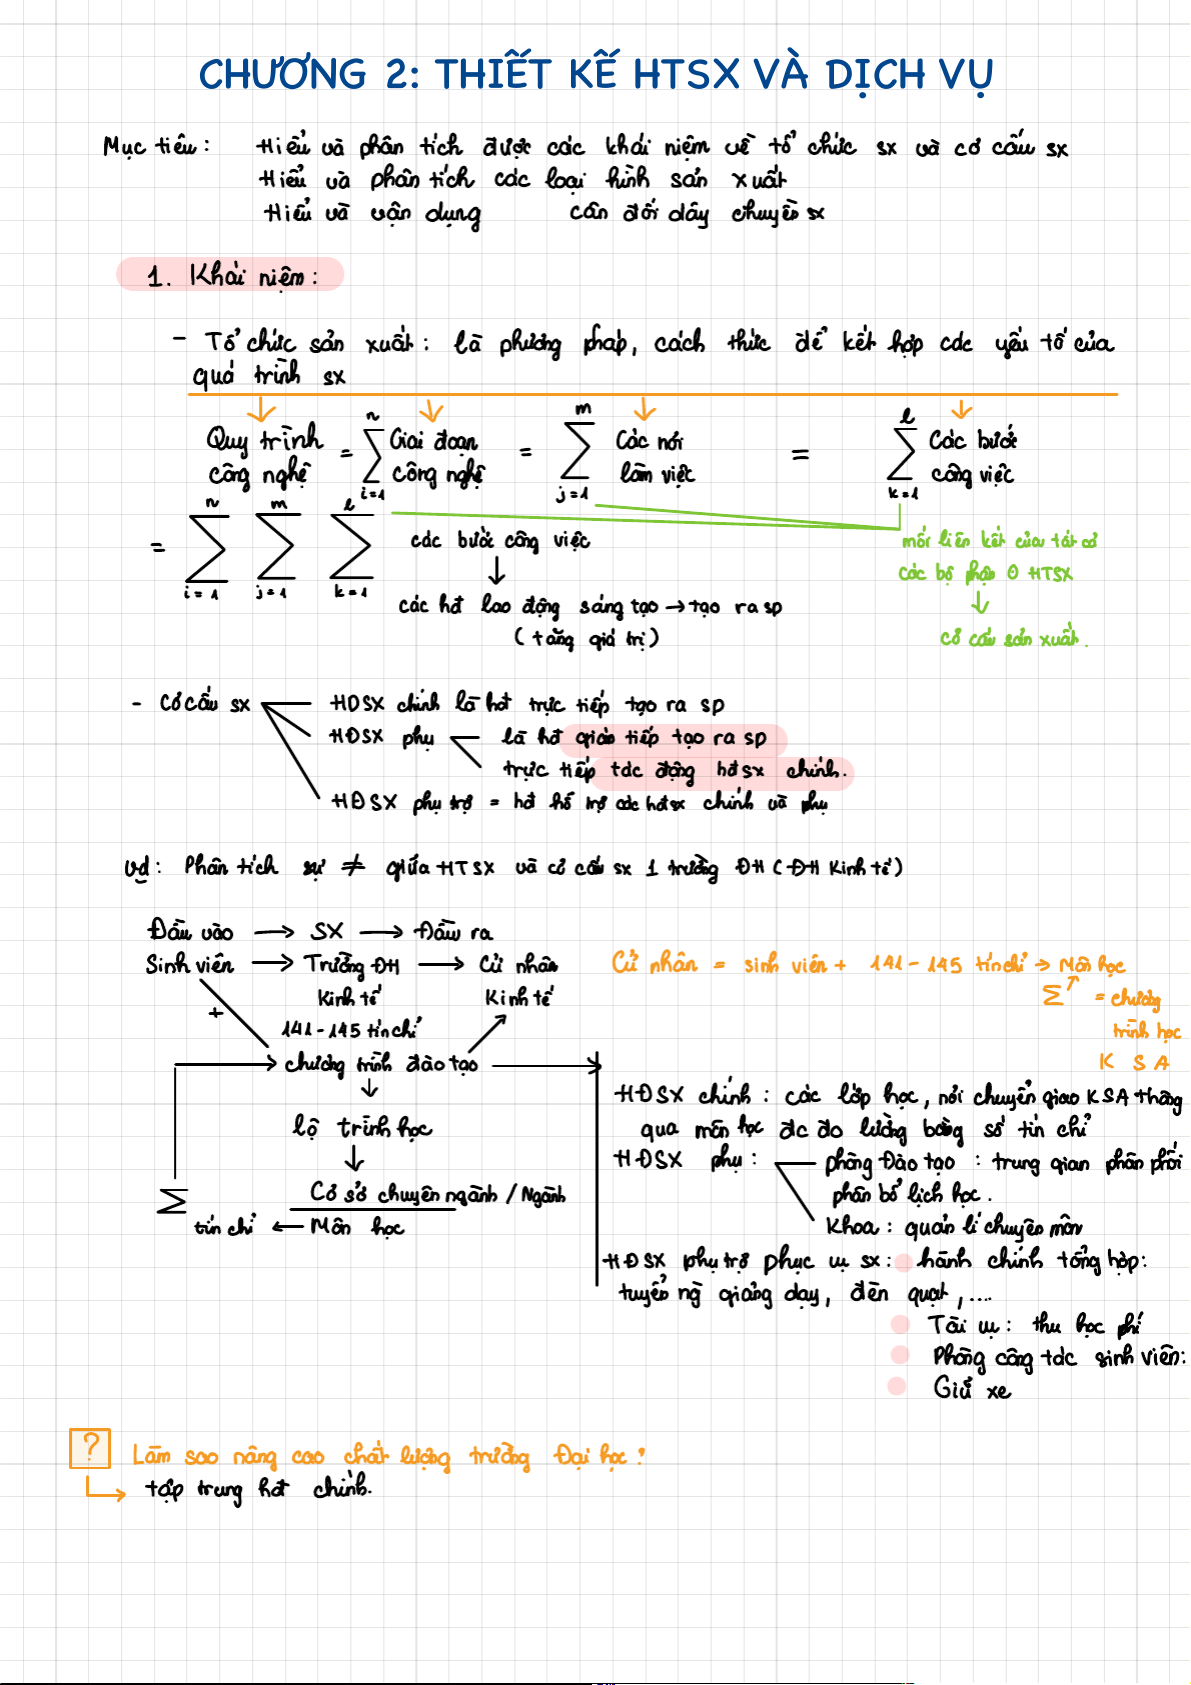 CHƯƠNG 2: THIẾT KẾ HTSX VÀ DỊCH VỤ
Mục tiêu: Hiểu và phân tích được các khái niệm về tổ chức sx và cơ cấu sx
Hiểu và phân tích các loại hình sản xuất
Hiểu và vận dụng cân đối dây chuyền sx
1. Khái niệm:
- Tổ chức sản xuất: là phương pháp, cách thức để kết hợp các yếu tố của
quá trình sx
Quy trình công nghệ = n ∑ i=1 Giai đoạn công nghệ = m ∑ j=1 Các nơi làm việc = l ∑ k=1 Các bước công việc
= n ∑ i=1 m ∑ j=1 l ∑ k=1 các bước công việc
các hđ lao động sáng tạo → tạo ra sp
(tăng giá trị)
mối liên kết của tất cả
các bộ phận ở HTSX
↓
cơ cấu sản xuất.
- Cơ cấu sx
HDSX chính là hđ trực tiếp tạo ra sp
HĐSX phụ là hđ gián tiếp tạo ra sp
trực tiếp tác động hđsx chính.
HĐSX phụ trợ = hđ hỗ trợ các hđsx chính và phụ
Vd: Phân tích sự ≠ giữa HTSX và cơ cấu sx 1 trường ĐH (ĐH Kinh tế)
Đầu vào → SX → Đầu ra
Sinh viên → Trường ĐH → Cử nhân
Kinh tế Kinh tế
+
141-145 tín chỉ
chương trình đào tạo
↓
lộ trình học
↓
Cơ sở chuyên ngành / Ngành
∑ tín chỉ ← Môn học
Cử nhân = sinh viên + 141-145 tín chỉ → Môn học
∑ = chương
trình học
K S A
HĐSX chính: các lớp học, nơi chuyển giao KSA thông
qua môn học đc đo lường bằng số tín chỉ
HĐSX phụ: phòng Đào tạo: trung gian phân phối
phân bổ lịch học.
Khoa: quản lí chuyên môn
HĐSX phụ trợ phục vụ sx: hành chính tổng hợp:
tuyển ng giảng dạy, đèn quạt,....
Tài vụ: thu học phí
Phòng công tác sinh viên:
Giữ xe
? Làm sao nâng cao chất lượng trường Đại học?
tập trung hđ chính.